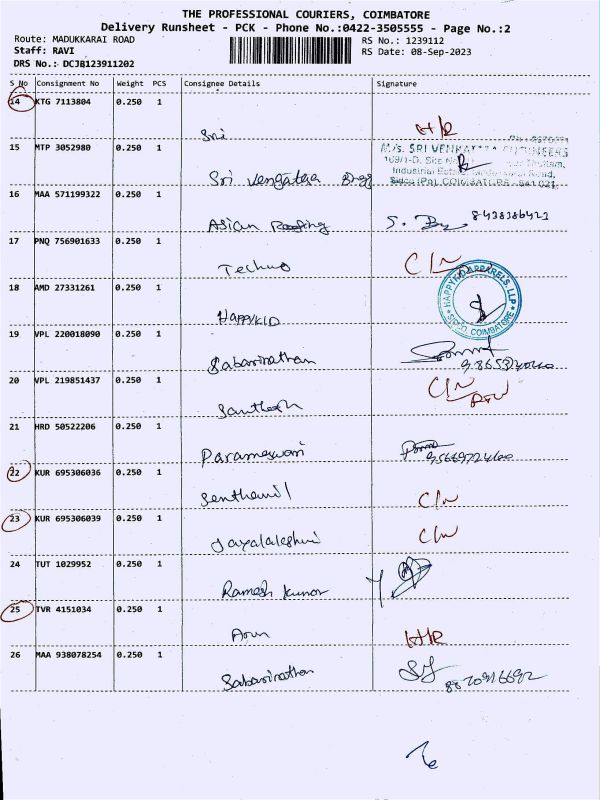 THE PROFESSIONAL COURIERS, COIMBATORE
Delivery Runsheet - PCK - Phone No.:0422-3505555 - Page No.:2
Route: MADUKKARAI ROAD
RS No.: 1239112
Staff: RAVI
RS Date: 08-Sep-2023
DRS No.: DCJB123911202
S No Consignment No Weight PCS Consignee Details Signature
14 KTG 7113804 0.250 1
Sri H/R
15 MTP 3052980 0.250 1
M/s. SRI VENKATESA ENGINEERS
109/1-D, Site No
Industrial Estate, Road,
Sidco (Po), COIMBATORE - 641 021.
Sri Vengatesa Engg
16 MAA 571199322 0.250 1
Asian Roofing S. 8438386423
17 PNQ 756901633 0.250 1
Techno C/N
18 AMD 27331261 0.250 1
HAPPYKID APPARELS, LLP
SIDCO, COIMBATORE
HAPPYKID
19 VPL 220018090 0.250 1
Sabarinathan
20 VPL 219851437 0.250 1
Santhosh C/N
21 HRD 50522206 0.250 1
Parameswari
22 KUR 695306036 0.250 1
Senthamil C/N
23 KUR 695306039 0.250 1
Jayalakshmi C/N
24 TUT 1029952 0.250 1
Ramesh Kumar
25 TVR 4151034 0.250 1
Arun H/R
26 MAA 938078254 0.250 1
Sabarinathan 8870916692